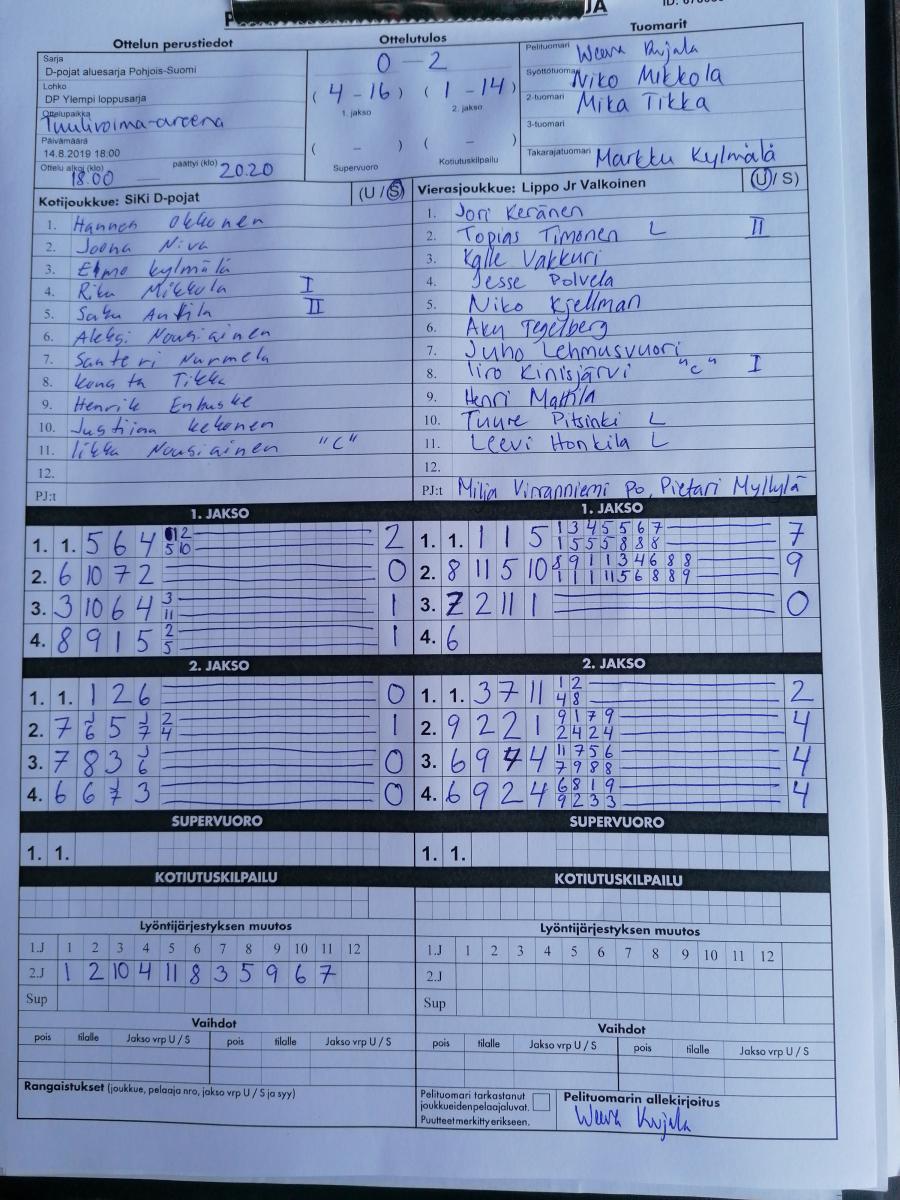 JA
Ottelun perustiedot
Sarja
D-pojat aluesarja Pohjois-Suomi
Lohko
DP Ylempi loppusarja
Ottelupaikka
Tuulivoima-areena
Päivämäärä
14.8.2019 18:00
Ottelu alkoi (klo) päättyi (klo)
18.00 20.20
Ottelutulos
0 - 2
( 4 - 16 ) ( 1 - 14 )
1. jakso 2. jakso
( - ) ( - )
Supervuoro Kotiutuskilpailu
Tuomarit
Pelituomari Weera Kujala
Syöttötuomari Niko Mikkola
2-tuomari Mika Tikka
3-tuomari
Takarajatuomari Markku Kylmälä
Kotijoukkue: SiKi D-pojat (U / S)
1. Hannes Okkonen
2. Joona Niva
3. Elmo Kylmälä
4. Riku Mikkola I
5. Saku Anttila II
6. Aleksi Nousiainen
7. Santeri Nurmela
8. Konsta Tikka
9. Henrik Enbuske
10. Justiina Kekonen
11. Iikka Nousiainen "C"
12.
PJ:t
Vierasjoukkue: Lippo Jr Valkoinen (U / S)
1. Jori Keränen
2. Topias Timonen L II
3. Kalle Vakkuri
4. Jesse Polvela
5. Niko Kjellman
6. Aku Tegelberg
7. Juho Lehmusvuori
8. Iiro Kinisjärvi "C" I
9. Henri Mattila
10. Tuure Pitsinki L
11. Leevi Honkila L
12.
PJ:t Milja Virranniemi po, Pietari Myllylä
1. JAKSO
1. 1. 5 6 4 12 2
5 10
2. 6 10 7 2 0
3. 3 10 6 4 3 1
11
4. 8 9 1 5 2 1
5
1. JAKSO
1. 1. 1 1 5 1 3 4 5 5 6 7 7
1 5 5 5 8 8 8
2. 8 11 5 10 8 9 1 1 3 4 6 8 8 9
1 1 1 11 5 6 8 8 9
3. 7 2 11 1 0
4. 6
2. JAKSO
1. 1. 1 2 6 0
2. 7 1/6 5 1/7 2 1
4
3. 7 8 3 1/6 0
4. 6 6 1/7 3 0
2. JAKSO
1. 1. 3 7 11 1 2 2
4 8
2. 9 2 2 1 9 1 7 9 4
2 4 2 4
3. 6 9 7 4 11 7 5 6 4
7 9 8 8
4. 6 9 2 4 6 8 1 9 4
9 2 3 3
SUPERVUORO
1. 1.
SUPERVUORO
1. 1.
KOTIUTUSKILPAILU
KOTIUTUSKILPAILU
Lyöntijärjestyksen muutos
1.J 1 2 3 4 5 6 7 8 9 10 11 12
2.J 1 2 10 4 11 8 3 5 9 6 7
Sup
Lyöntijärjestyksen muutos
1.J 1 2 3 4 5 6 7 8 9 10 11 12
2.J
Sup
Vaihdot
pois tilalle Jakso vrp U / S pois tilalle Jakso vrp U / S
Vaihdot
pois tilalle Jakso vrp U / S pois tilalle Jakso vrp U / S
Rangaistukset (joukkue, pelaaja nro, jakso vrp U / S ja syy)
Pelituomari tarkastanut
joukkueiden pelaajaluvat.
Puutteet merkitty erikseen.
Pelituomarin allekirjoitus
Weera Kujala